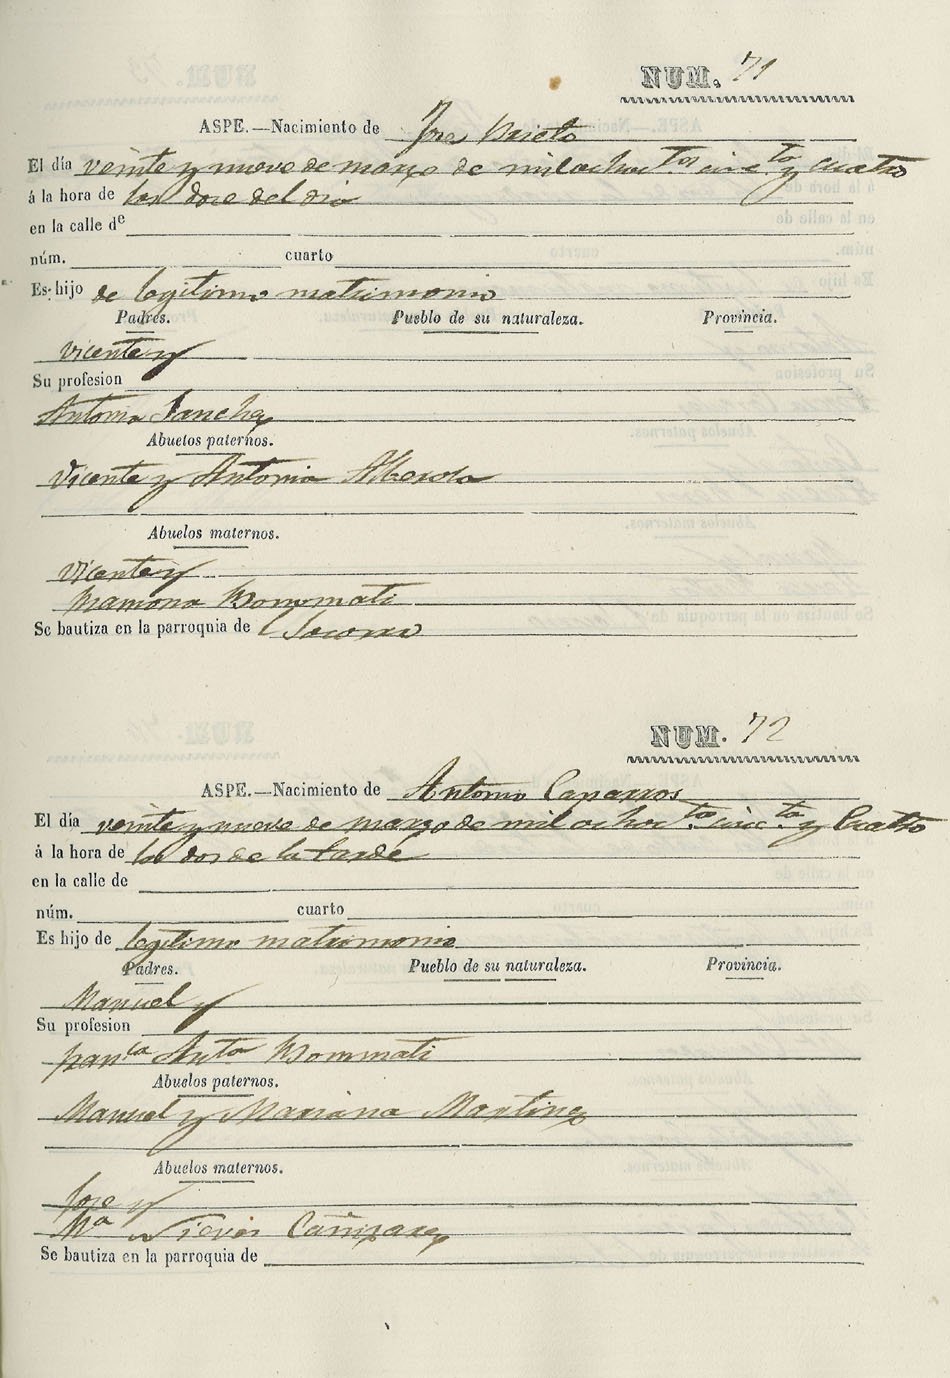 NUM. 71
ASPE.—Nacimiento de Jose Prieto
El día veinte y nueve de marzo de mil ochoc.tos cinc.ta y cuatro
á la hora de las doce del dia
en la calle de
núm. cuarto
Es hijo de legitimo matrimonio
Padres. Pueblo de su naturaleza. Provincia.
Vicente y
Su profesion
Antonia Sanchez
Abuelos paternos.
Vicente y Antonia Alberola
Abuelos maternos.
Vicente y
Ramona Bommati
Se bautiza en la parroquia de Socorro
NUM. 72
ASPE.—Nacimiento de Antonio Caparros
El día veinte y nueve de marzo de mil ochoc.tos cinc.ta y Cuatro
á la hora de las dos de la tarde
en la calle de
núm. cuarto
Es hijo de legitimo matrimonio
Padres. Pueblo de su naturaleza. Provincia.
Manuel y
Su profesion
Fran.ca Ant.a Bommati
Abuelos paternos.
Manuel y Mariana Martinez
Abuelos maternos.
Jose y
M.a Nieves Cañizares
Se bautiza en la parroquia de